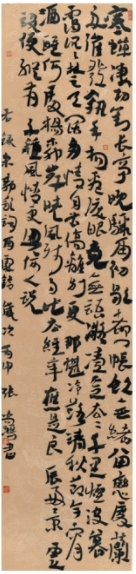 寒蟬凄切對長亭晚驟雨初歇都門帳飲無緒留戀處蘭
舟催發執手相看淚眼竟無語凝噎念去去千里煙波暮
靄沉沉楚天闊多情自古傷離別更那堪冷落清秋節今宵
酒醒何處楊柳岸曉風殘月此去經年應是良辰好景虛
設便縱有千種風情更與何人說
右錄宋柳永詞雨霖鈴歲次丙申張書